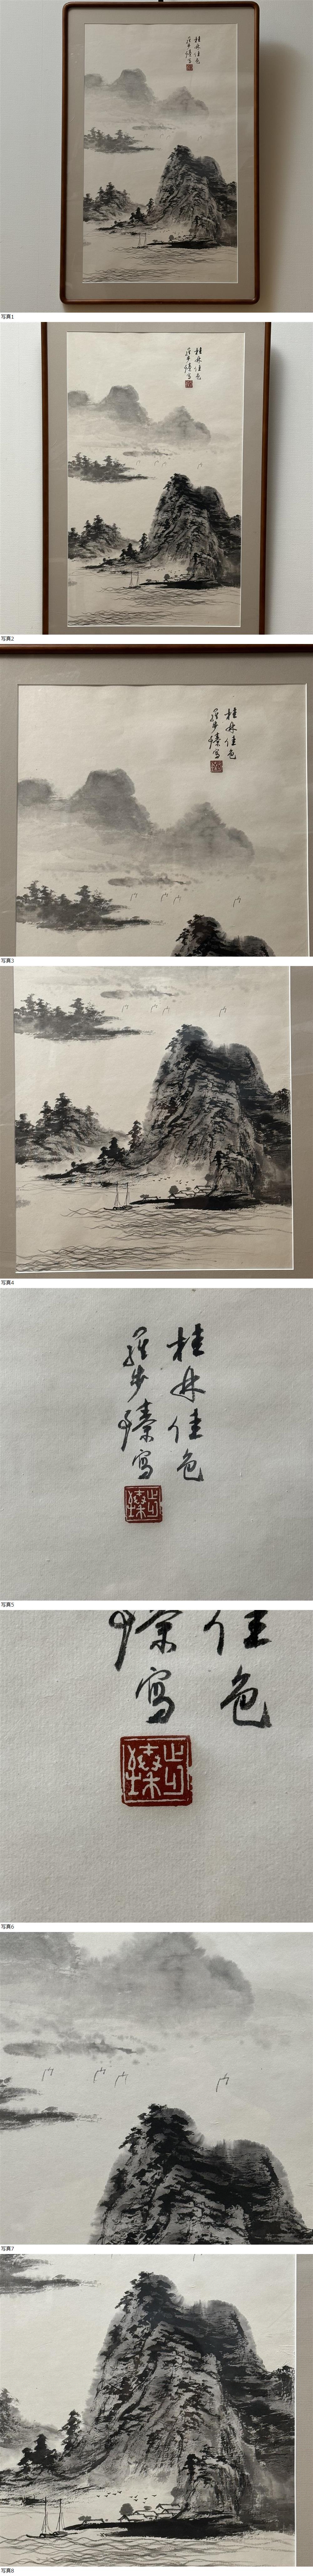 桂林佳色
羅步臻寫
写真1
桂林佳色
羅步臻寫
写真2
桂林佳色
羅步臻寫
写真3
写真4
桂林佳色
羅步臻寫
步臻
写真5
佳色
臻寫
步臻
写真6
写真7
写真8